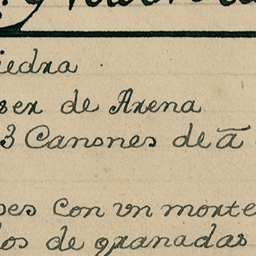 iedra
ser de Arena
3 Canones de ā
es con vn morte
os de granadas